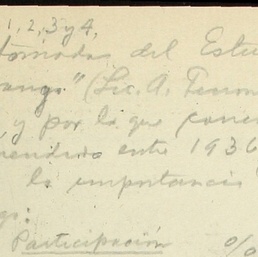 1, 2, 3 y 4,
tomados del Estu
ango" (Lic. A.
y por lo que conc
rendido entre 1936
la importancia
go:
Participación %